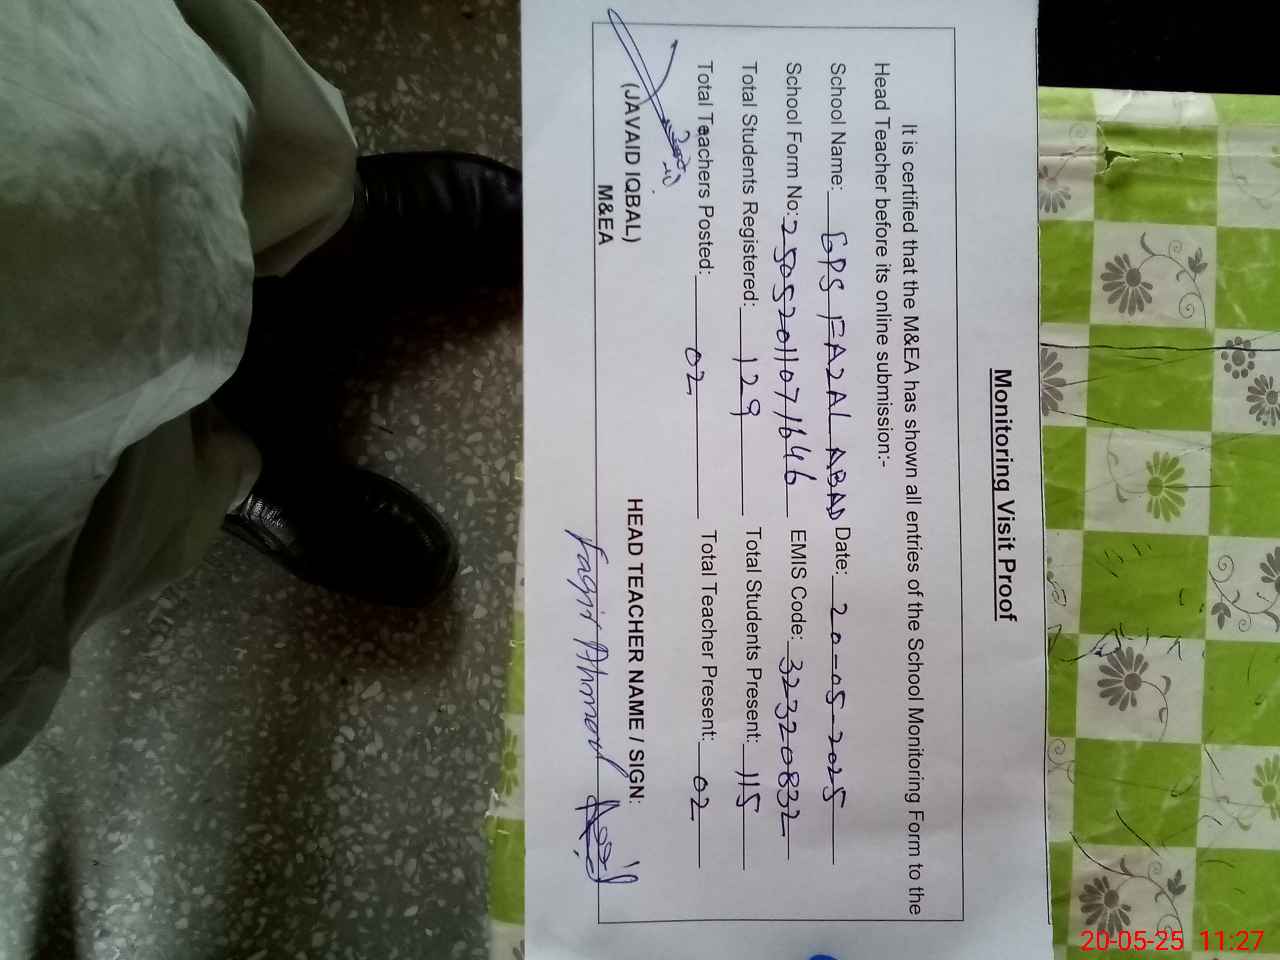 Monitoring Visit Proof
It is certified that the M&EA has shown all entries of the School Monitoring Form to the
Head Teacher before its online submission:-
School Name: GPS FAZAL ABAD Date: 20-05-2025
School Form No: 25052011071646 EMIS Code: 32320832
Total Students Registered: 129 Total Students Present: 115
Total Teachers Posted: 02 Total Teacher Present: 02
(JAVAID IQBAL)
M&EA
HEAD TEACHER NAME / SIGN:
Ahmad
20-05-25 11:27